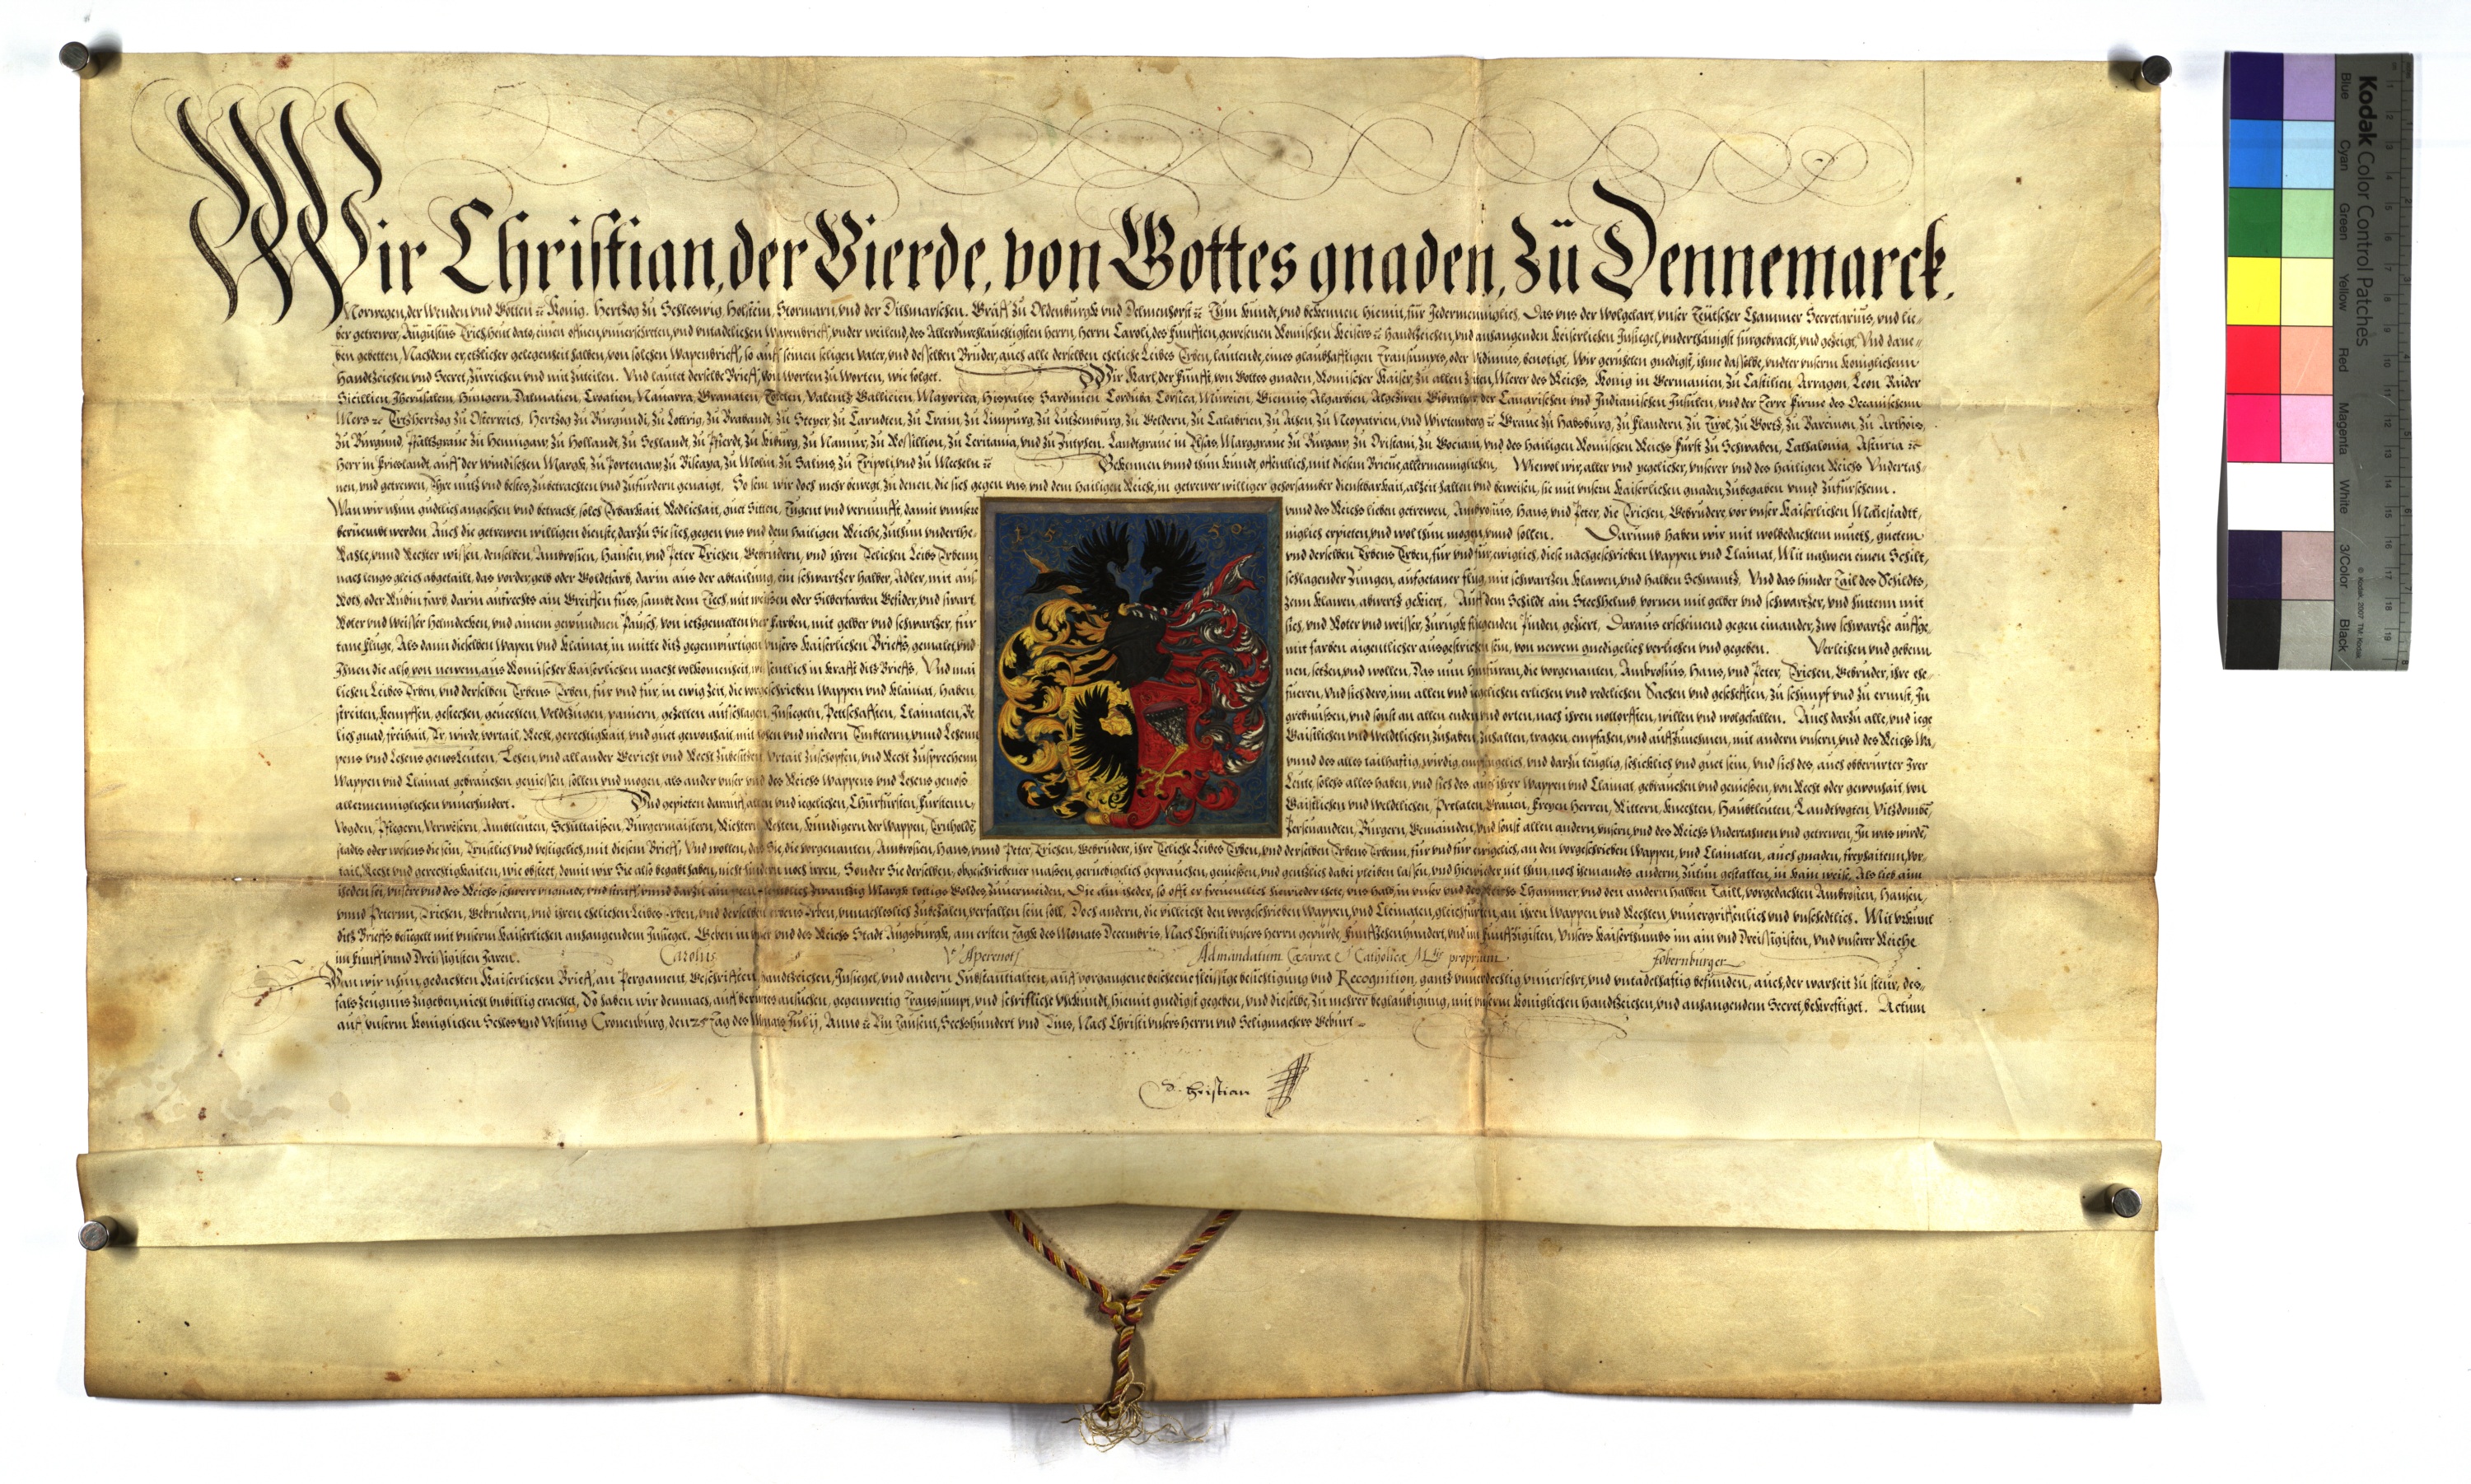 Wir Christian, der Vierde, von Gottes gnaden, Zů Dennemarck,
Norwegen, der Wenden vnd Gotten ꝛc König. Hertzog zu Schleswig, Holstein, Stormarn, vnd der Ditsmarschen. Gräff zu Oldenburgk vnd Delmenhorst ꝛc Tun kundt, vnd bekennen hiemit, für Jedermenniglich, Das vns der Wolgelart, vnser Teütscher Chammer Secretarius, vnd lie-
ber getrewer, Augustus Erich, heut dato, einen offnen, vnuersereten, vnd vntadelichen Wapenbrieff, vnder weilend, des Allerdurchlauchtigsten herrn, Herrn Caroli, des Fünfften, gewesenen Romischen Keisers ꝛc Handtzeichen, vnd anhangenden Keiserlichen Insiegel, vnderthänigst fürgebracht, vnd gezeigt, Vnd dane-
ben gebetten, Nachdem er, etzlicher gelegenheit halben, von solchen Wapenbrieff, so auff seinen seligen Vater, vnd desselben Bruder, auch alle derselben eheliche Leibes Erben, lautende, eines glaubhafftigen Transumpts, oder Vidimus, benötigt, Wir geruheten gnedigst, ihme dasselbe, vndter vnserm Königlichenn
Handtzeichen vnd Secret, zureichen vnd mit zuteilen. Vnd lautet derselbe Brieff, von worten zu Worten, wie folget. Wir Karl, der Fünfft, von Gottes gnaden, Romischer Kaiser, zu allen Zeiten, Merer des Reichs, König in Germanien, zu Castilien, Arragon, Leon, Baider
Sicillien, Jherusalem, Hungern, Dalmatien, Croatien, Nauarra, Granaten, Toleten, Valentz, Gallicien, Mayorica, Hispalis, Sardinien, Corduba, Corsica, Murcien, Giennis, Algarbien, Algeziren, Gibraltar, der Canarischen vnd Indianischen Insulen, vnd der Terre Firme des Oceanischenn
Mers ꝛc Ertzhertzog zu Osterreich, Hertzog zu Burgundi, zu Lottrig, zu Brabandt, zu Steyer, zu Carndten, zu Crain, zu Limpurg, zu Lutzemburg, zu Geldern, zu Calabrien, zu Athen, zu Neopatrien, vnd Wirtemberg ꝛc Graue zu Habspurg, zu Flandern, zu Tirol, zu Gortz, zu Barcinon, zu Arthois,
zu Burgund, Pfaltzgraue zu Hennigaw, zu Hollandt, zu Seelandt, zu Pfierdt, zu Kiburg, zu Namur, zu Rossillion, zu Ceritania, vnd zu Zutphen. Landtgraue in Elsas, Marggraue zu Burgaw, zu Oristani, zu Gociani, vnd des Hailigen Romischen Reichs Fürst zu Schwaben, Cathalonia, Asturia ꝛc
Herr in Frieslandt, auff der Windischen Margk, zu Portenaw, zu Biscaya, zu Molin, zu Salins, zu Tripoli, vnd zu Mecheln ꝛc Bekennen vnnd thun kundt, offentlich, mit diesem Brieue, allermenniglichen, Wiewol wir, aller vnd yegelicher, vnserer vnd des Hailigen Reichs Vndertah-
nen, vnd getrewen, Ihre nutz vnd bestes, zubetrachten vnd zufürdern genaigt, So sein wir doch mehr bewegt, zu denen, die sich gegen vns, vnd dem Hailigen Reiche, in getrewer williger gehorsamber dienstbarkait, alzeit halten vnd beweisen, sie mit vnsern Kaiserlichen gnaden, zubegaben vnnd zufürsehenn.
Wan wir nhun gudtlich angesehen vnd betracht, solch Erbarkait, Redlichait, guet Sitten, Tugent vnd vernunfft, damit vnnsere vnnd des Reichs lieben getrewen, Ambrosius, Hans, vnd Peter, die Erichen, Gebrüdere, vor vnser Kaiserlichen Maiestadtt,
beruembt werden, Auch die getrewen willigen dienste, darzu Sie sich, gegen vns vnd dem Hailigen Reiche, zuthun vnderthe- niglich erpieten, vnd wol thun mogen, vnnd sollen. Darumb haben wir mit wolbedachtem mueth, guetem
Rahte, vnnd Rechter wissen, denselben, Ambrosien, Hansen, vnd Peter Erichen, Gebrüdern, vnd ihren Eelichen Leibs Erbenn, vnd derselben Erbens Erben, für vnd für, ewiglich, diese nachgeschrieben Wappen vnd Clainat, Mit nahmen einen Schilt,
nach lengs gleich abgetailt, das vorder, gelb oder Goldtfarb, darin aus der abtailung, ein schwartzer halber, Adler, mit aus- schlagender Zungen, aufgetaner flug, mit schwartzen klawen, vnd halben Schwantz. Vnd das hinder Tail des Schildts,
Roth, oder Rubin farb, darin aufrechts ain Greiffen fües, sambt dem Diech, mit weissen oder Silberfarben Gefider, vnd swart zenn klawen, abwertz gekiert, Auff dem Schildt ain Stechhelmb, vornen mit gelber vnd schwartzer, vnd hintenn mit
Roter vnd weisser Helmdecken, vnd ainem gewundnen Pausch, von ietzgemelten vier Farben, mit gelber vnd schwartzer, für sich, vnd Roter vnd weisser, zurugk fliegenden Pinden, geziert, Daraus erscheinend gegen einander, zwo schwartze auffge-
tane Fluge, Als dann dieselben Wapen vnd Klainat, in mitte ditz gegenwurtigen vnsers Kaiserlichen Brieffs, gemalet, vnd mit farben aigentlicher ausgestrichen sein, von newem gnediglich verliehen vnd gegeben. Verleihen vnd gebenn
Ihnen die also, von newem, aus Romischer Kaiserlichen macht volkomenheit, wissentlich in krafft dits Brieffs, Vnd mai nen, setzen, vnd wollen, Das nun hinfuran, die vorgenanten, Ambrosius, Hans, vnd Peter, Erichen, Gebrüder, ihre ehe-
lichen Leibes Erben, vnd derselben Erbens Erben, für vnd für, in ewig zeit, die vorgeschrieben Wappen vnd Klainat, haben, fueren, Vnd sich dero, inn allen vnd iegelichen erlichen vnd redelichen Sachen vnd geschefften, zu schimpf vnd zu ernnst, In
streiten, kempffen, gestechen, geuechten, Veldtzugen, paniern, gezelten aufschlagen, Insiegeln, Pettschafften, Clainaten, Be grebnußen, vnd sonst an allen enden vnd orten, nach ihren nottorfften, willen vnd wolgefallen. Auch darzu alle, vnd iege
lich gnad, freihait, Er, wirde, vortail, Recht, gerechtigkait, vnd guet gewonhait, mit hohen vnd niedern Embtern, vnnd Lehenn Gaistlichen vnd Weldtlichen, zuhaben, zuhalten, tragen, empfahen, vnd auffzunehmen, mit andern vnsern, vnd des Reichs Wa-
pens vnd Lehens genosLeuten, Lehen, vnd all ander Gericht vnd Recht zubesitzen, Vrtail zuschopfen, vnd Recht zusprechenn vnnd des alles tailhafftig, wirdig, empfengelich, vnd darzu teuglig, schicklich vnd guet sein, vnd sich des, auch obberurter Irer
Wappen vnd Clainat gebrauchen, geniessen, sollen vnd mogen, als ander vnser vnd des Reichs Wappens vnd Lehens genoß Leute, solchs alles haben, vnd sich des auch ihrer Wappen vnd Clainat, gebrauchen vnd geniessen, von Recht oder gewonhait, von
allermenniglichen vnuerhindert. Vnd gepieten darauff, allen vnd iegelichen, Chürfürsten, Fürstenn, Gaistlichen vnd Weldtlichen, Prelaten, Grauen, Freyen Herren, Rittern, Knechten, Haubtleuten, Landtvogten, Vitzdomben,
Vogden, Pflegern, Verwesern, Ambtleuten, Schultaissen, Burgermaistern, Richtern, Rehten, Kundigern der Wappen, Ernholden, Perseuandten, Burgern, Gemainden, vnd sonst allen andern, vnsern, vnd des Reichs Vndertahnen vnd getrewen, In was wirde,
stadts oder wesens die sein, Ernstlich vnd vestigelich, mit diesem Brieff, Vnd wollen, das Sie, die vorgenanten, Ambrosien, Hans, vnnd Peter, Erichen, Gebrüdere, ihre Eeliche Leibes Erben, vnd derselben Erbens Erbenn, für vnd für ewigelich, an den vorgeschrieben Wappen, vnd Clainaten, auch gnaden, freyhaitenn, Vor-
tail, Recht vnd gerechtigkaiten, wie obsteet, domit wir Sie also begabt haben, nicht hindern noch irren, Sonder Sie derselben, obgeschriebener massen, geruhiglich geprauchen, geniessen, vnd gentzlich dabei pleiben lassen, vnd hierwider nit thun, noch ihemandts anderm, zuthun gestatten, in kain weise, Als lieb aim
iheden sei, vnsere vnd des Reichs schwere vngnade, vnd straff, vnnd darzu ain peen, nemblich zwantzig Margk lottigs Goldes, zuuermeiden, Die ain ieder, so offt er freuenlich hiewieder thete, vns halb, in vnser vnd des Reichs Chammer, vnd den andern halben Taill, vorgedachten Ambrosien, Hansen,
vnnd Peternn, Erichen, Gebrüdern, vnd ihren ehelichen Leibes Erben, vnd derselben Erbens Erben, vnnachleslich zubezalen, verfallen sein soll, Doch andern, die villeicht den vorgeschrieben Wappen, vnd Cleinaten, gleich fürten, an ihren Wappen vnd Rechten, vnuergriffenlich vnd vnschedlich. Mit vrkunt
dits Brieffs besiegelt mit vnserm Kaiserlichen anhangendem Insiegel. Geben in vnser vnd des Reichs Stadt Augspurgk, am ersten Tagk des Monats Decembris, Nach Christi vnsers Herrn gepurde, Funffzehenhundert, vnd im Funffzigisten, Vnsers Kaiserthumbs im ain vnd Dreissigisten, vnd vnserer Reiche
im Funff vnnd Dreissigisten Jaren. Carolus. Vt Aperenot Admandatum Cæsareæ & Catholicæ Mtis proprium. Jobernburger
Wan wir nhun, gedachten Kaiserlichen Brieff, an Pergament, Geschrifften, Handtzeichen, Insiegel, vnd andern Substantialien, auff vorgangene beschehene fleissige besichtigung vnd Recognition, gantz vnuerdechtig, vnuersehrt, vnd vntadelhafftig befunden, auch, der warheit zu steur, des-
fals zeugnus zugeben, nicht vnbillig erachtet, So haben wir demnach, auff berurtes ansuchen, gegenwertig Transumpt, vnd schrifftliche Vhrkundt, hiemit gnedigst gegeben, vnd dieselbe, zu mehrer beglaubigung, mit vnserm Königlichen Handtzeichen, vnd anhangendem Secret, bekrefftiget. Actum
auff vnserm Königlichen Schlos vnd Vestung Cronenburg, den 25 Tag des Monats Julij, Anno ꝛc Ein Tausent, Sechshundert vnd Eins, Nach Christi vnsers Herrn vnd Seligmachers Geburt
1550
Christian
Kodak Color Control Patches
Blue Cyan Green Yellow Red Magenta White 3/Color Black
© Kodak, 2007 TM: Kodak